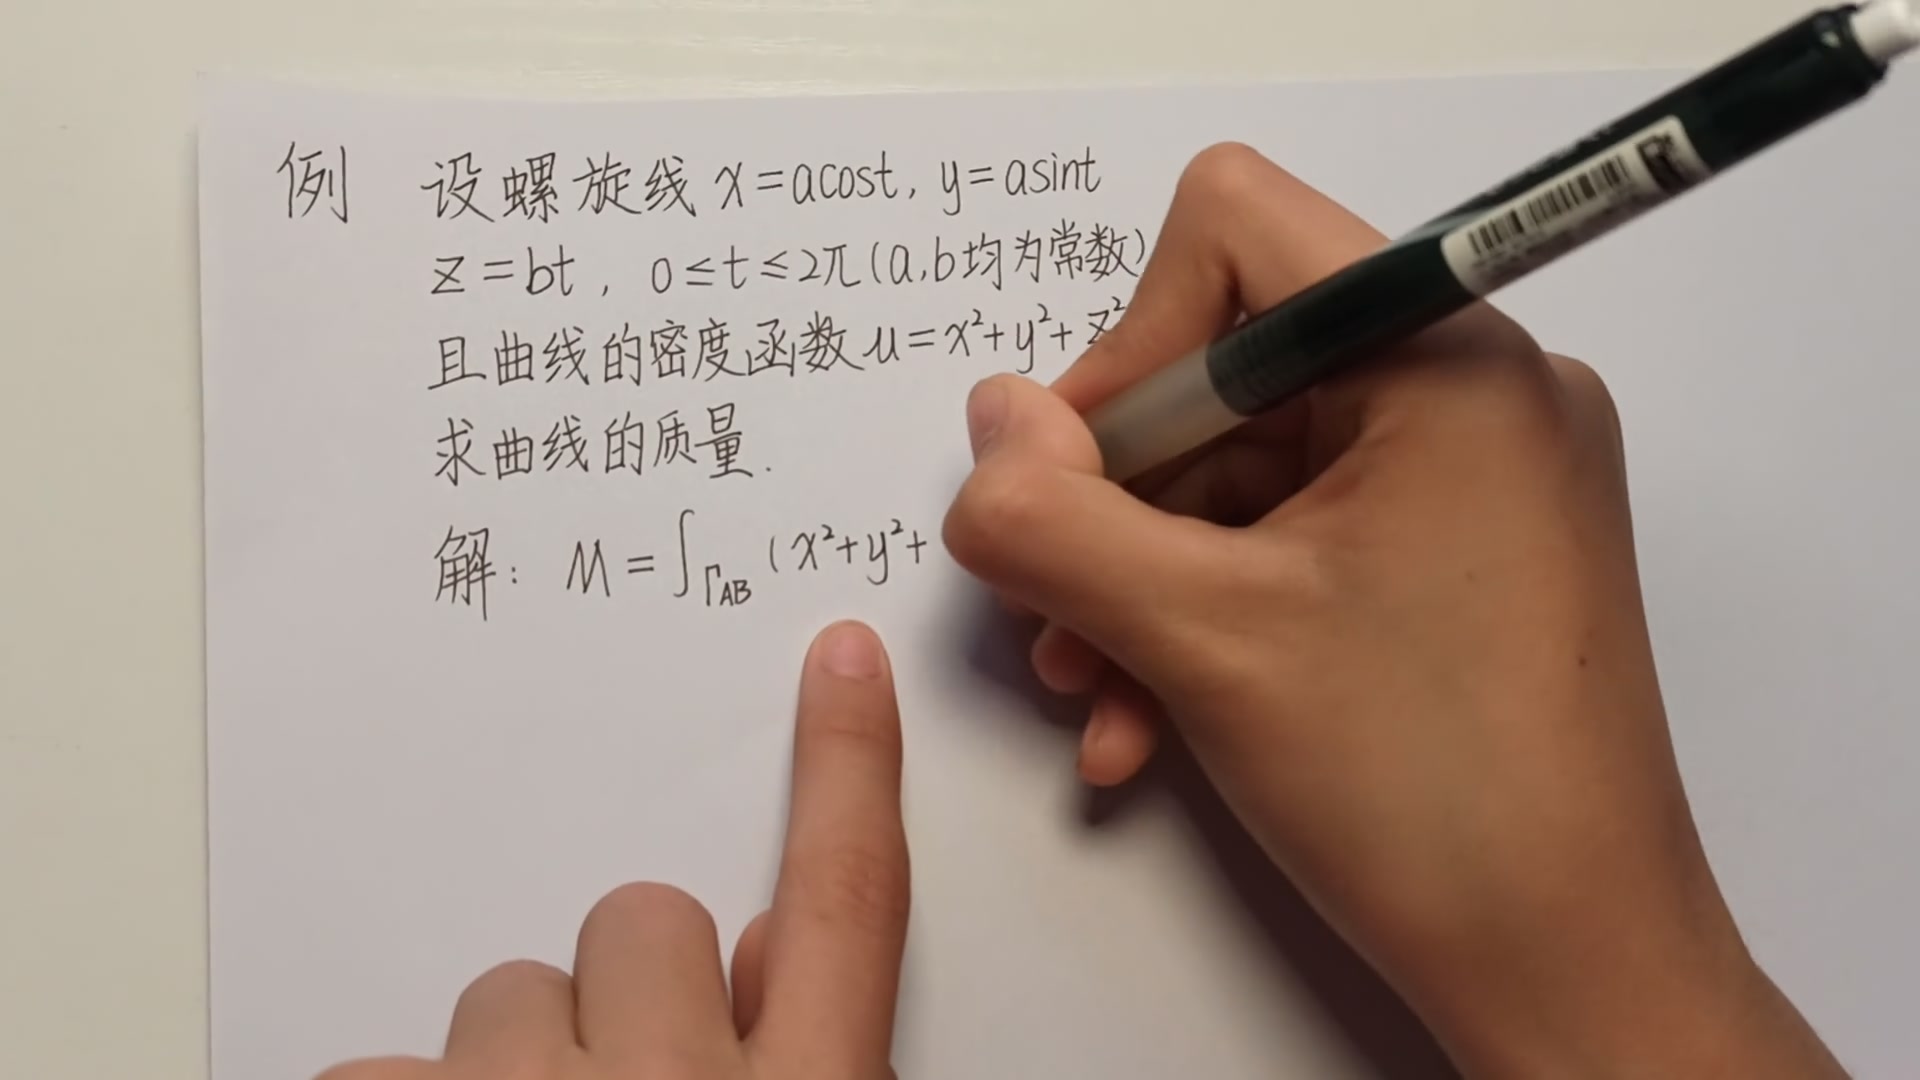 例 设螺旋线 x=acost, y=asint
z=bt, 0≤t≤2π(a,b均为常数)
且曲线的密度函数μ=x²+y²+z²
求曲线的质量.
解: M=∫ΓAB (x²+y²+